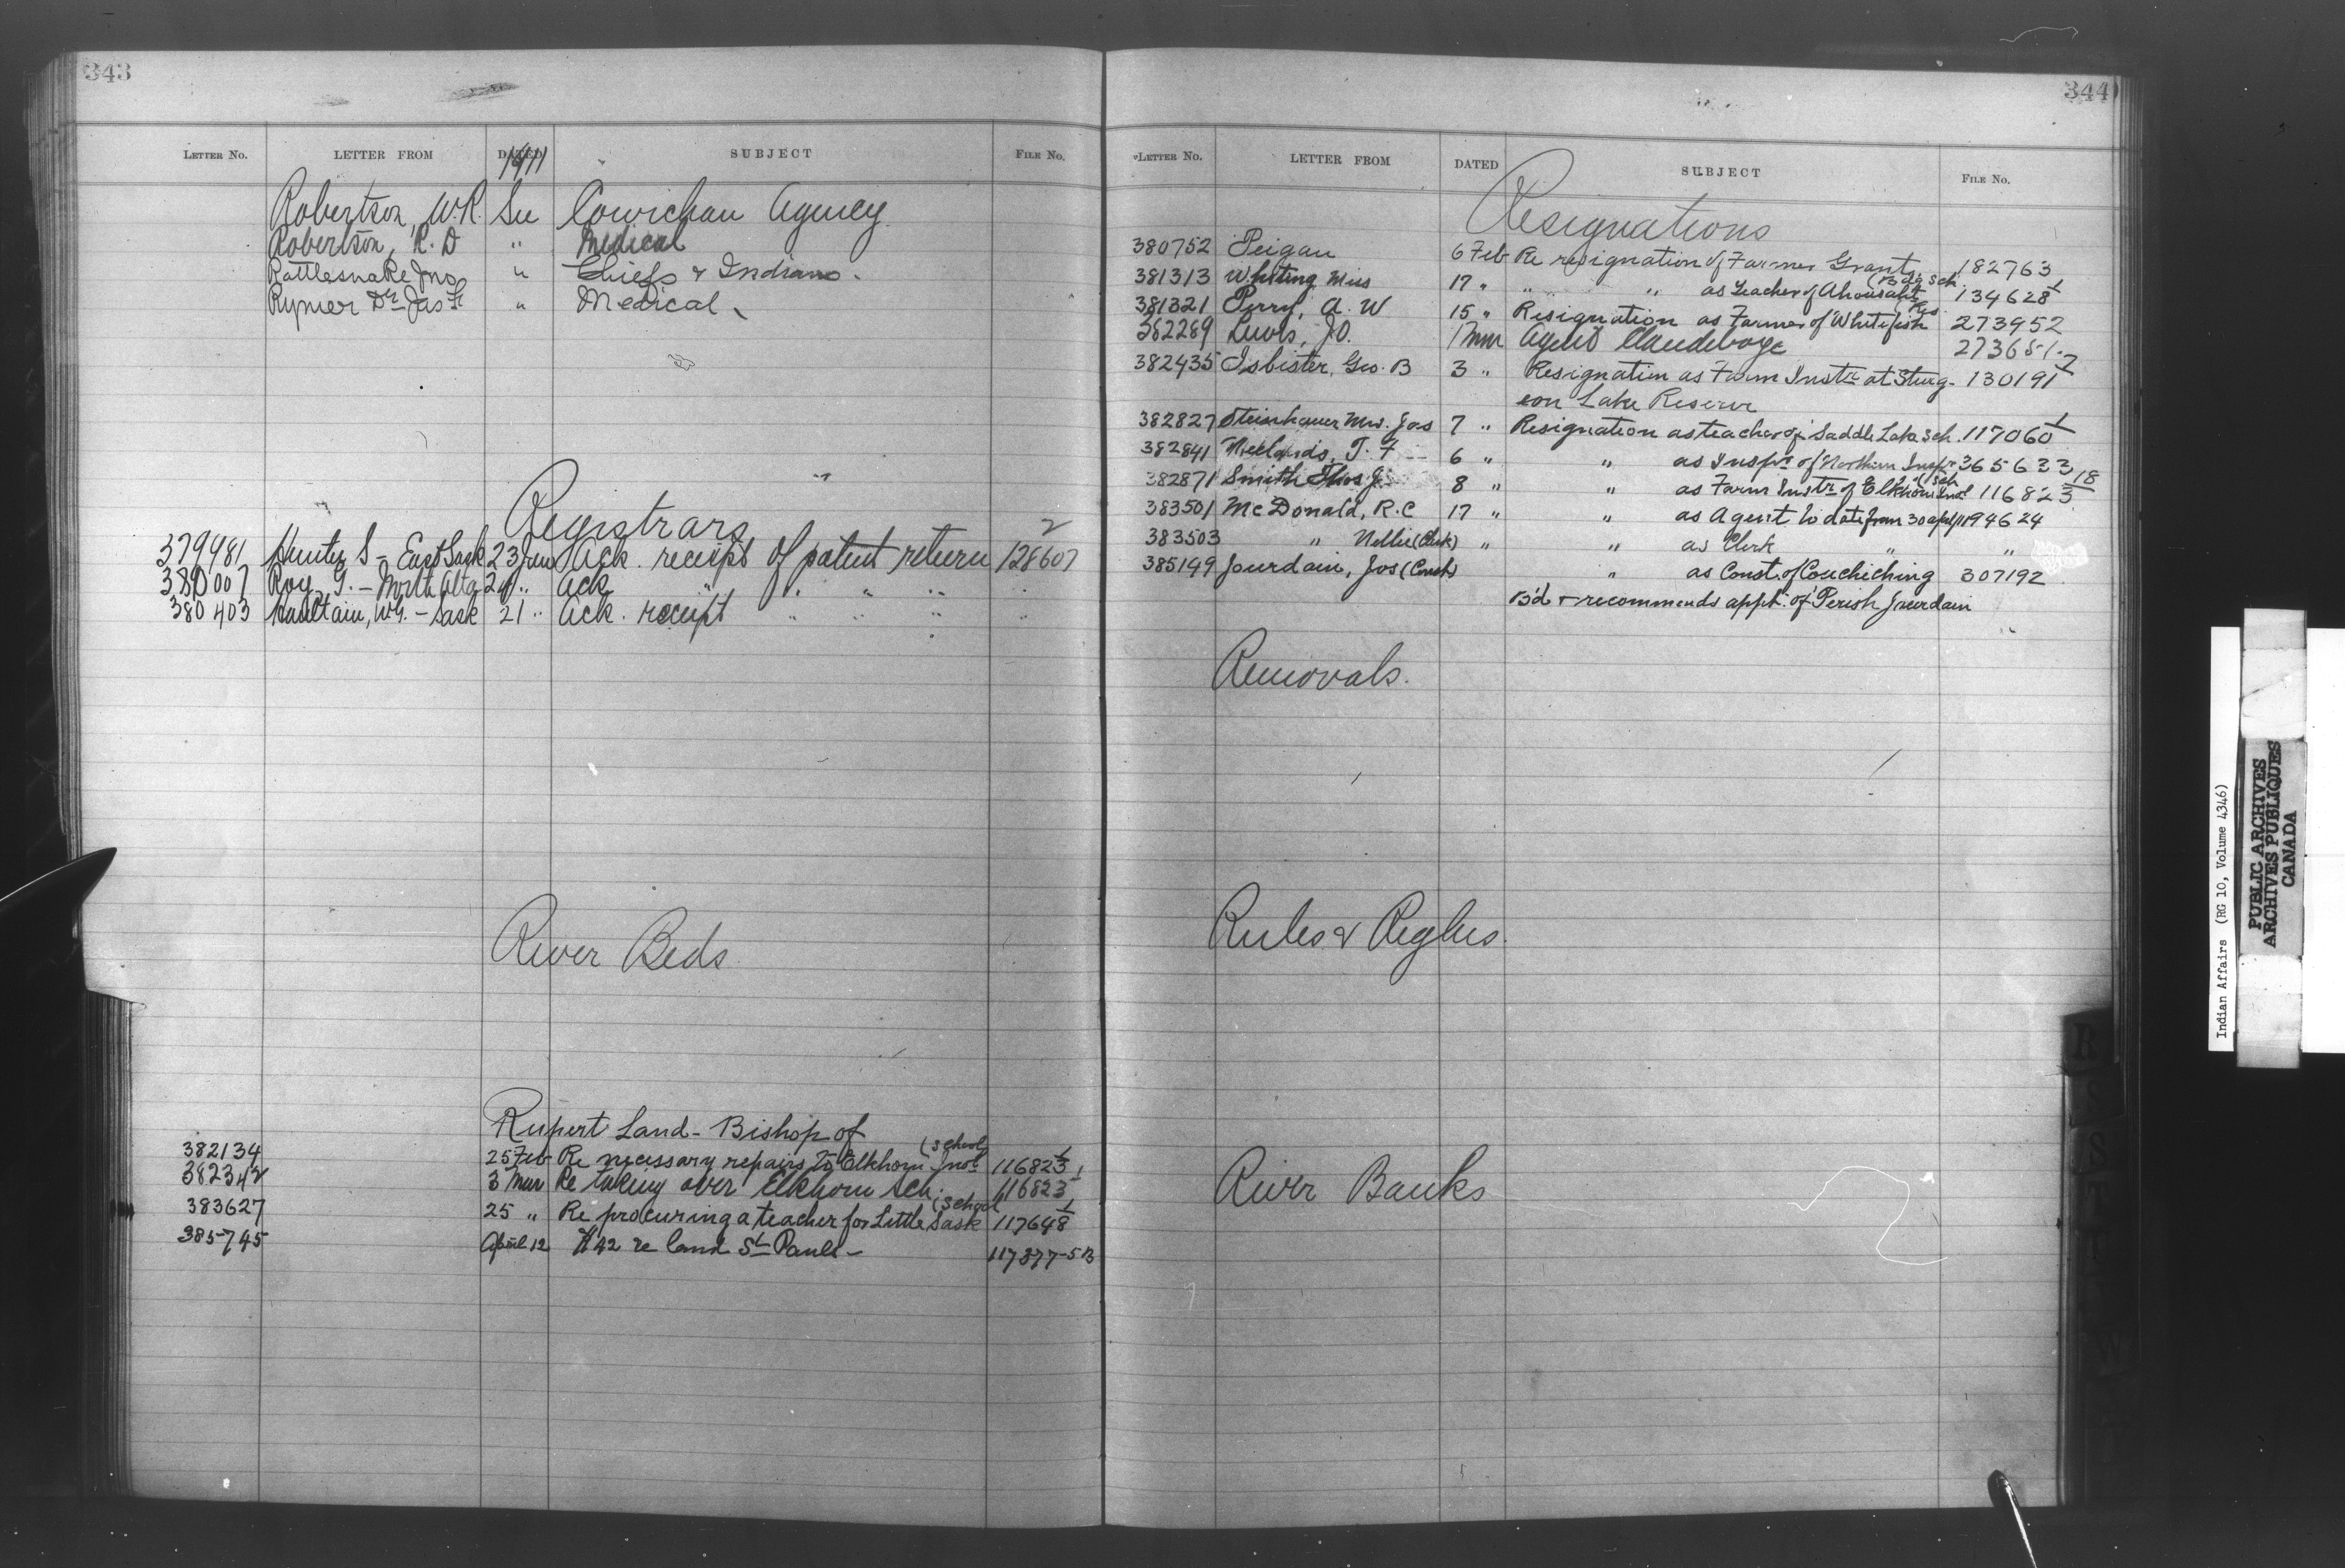 343
LETTER NO. LETTER FROM DATED SUBJECT FILE NO.
1911
Robertson, W.R. See Cowichan Agency
Robertson, R. D " Medical
Rattlesnake Jno " Chiefs & Indians.
Rymer Dr Jas " Medical
Registrars
379981 Hunter S - East Sask 23 Jan Ack. receipt of patent return 128607 2
380007 Roy, G. - North Alta " Ack " " " "
380403 W.G. - Sask 21 " Ack. receipt " " " "
River Beds
Rupert Land - Bishop of
382134 25 Feb Re necessary repairs to Elkhorn Indl (School 116823 1
382342 3 Mar Re taking over Elkhorn Sch. 116823 1
383627 25 " Re procuring a teacher for Little Sask (School 117648 1
385745 April 12 #42 re land St Pauls - 117377-5B
344
LETTER NO. LETTER FROM DATED SUBJECT FILE NO.
Resignations
380752 Peigan 6 Feb Re resignation of Farmer Grant 182763
381313 Whiting Miss 17 " " " as teacher of Ahousaht (Bdg Sch 134628 1
381321 Perry, A. W 15 " Resignation as Farmer of Whitefish Res 273952
382289 Lewis, J.O. 1 Mar Agent Clandeboye 273651.
382435 Isbister, Geo. B 3 " Resignation as Farm Instr at Sturg- 130191 2
eon Lake Reserve
382827 Steinhauer Mrs. Jas 7 " Resignation as teacher of Saddle Lake Sch. 117060 1
382841 Neelands, T. F 6 " " as Inspr of Northern Inspn 365633
382871 Smith Thos J. 8 " " as Farm Instr of Elkhorn Indl (Sch 116823 18
383501 McDonald, R.C 17 " " as Agent to date from 30 apl/11 94624
383503 " Nellie (Clerk) " " as Clerk " "
385149 Jourdain, Jos (Const) " as Const. of Couchiching 307192
B'd & recommends appt. of Perish Jourdain
Removals.
Rules & Reglns.
River Banks
R
S
T
W
Indian Affairs (RG 10, Volume 4346)
PUBLIC ARCHIVES
ARCHIVES PUBLIQUES
CANADA